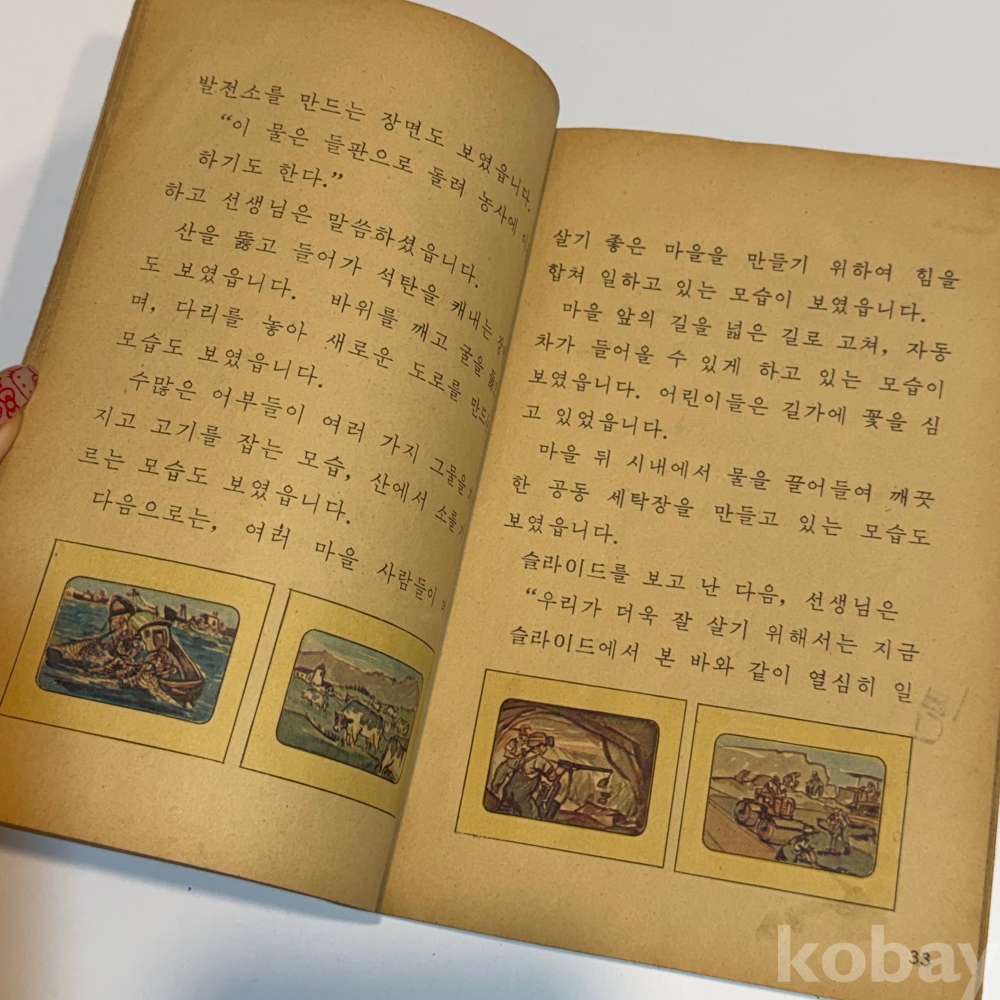 발전소를 만드는 장면도 보였읍니다.
“이 물은 들판으로 돌려 농사에
하기도 한다.”
하고 선생님은 말씀하셨읍니다.
산을 뚫고 들어가 석탄을 캐내는
도 보였읍니다. 바위를 깨고 굴을
며, 다리를 놓아 새로운 도로를
모습도 보였읍니다.
수많은 어부들이 여러 가지 그물을
지고 고기를 잡는 모습, 산에서 소를
르는 모습도 보였읍니다.
다음으로는, 여러 마을 사람들이
살기 좋은 마을을 만들기 위하여 힘을
합쳐 일하고 있는 모습이 보였읍니다.
마을 앞의 길을 넓은 길로 고쳐, 자동
차가 들어올 수 있게 하고 있는 모습이
보였읍니다. 어린이들은 길가에 꽃을 심
고 있었읍니다.
마을 뒤 시내에서 물을 끌어들여 깨끗
한 공동 세탁장을 만들고 있는 모습도
보였읍니다.
슬라이드를 보고 난 다음, 선생님은
“우리가 더욱 잘 살기 위해서는 지금
슬라이드에서 본 바와 같이 열심히 일
33
kobay